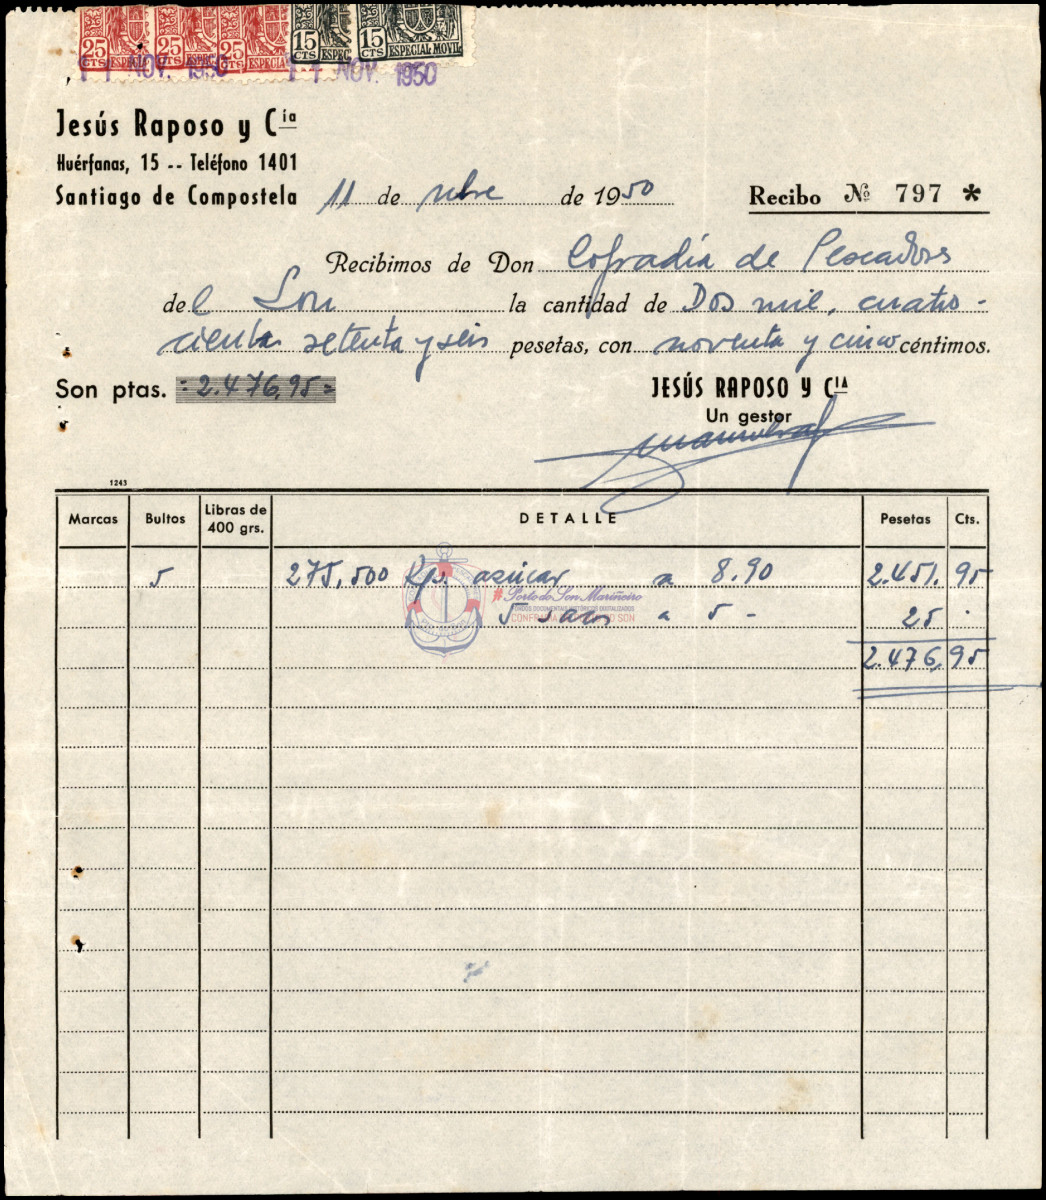 25 CTS ESPECIA 25 CTS ESPECIA 25 CTS ESPECIA 15 CTS ESPEC 15 CTS ESPECIAL MOVIL
11 NOV. 1950 11 NOV. 1950
Jesús Raposo y Cía
Huérfanas, 15 -- Teléfono 1401
Santiago de Compostela 11 de nbre de 1950 Recibo Nº 797 *
Recibimos de Don Cofradía de Pescadores
del Son la cantidad de Dos mil, cuatro-
cientas setenta y seis pesetas, con noventa y cinco céntimos.
Son ptas. =2.476,95=
JESÚS RAPOSO Y CIA
Un gestor
1243
Marcas Bultos Libras de 400 grs. DETALLE Pesetas Cts.
5 275,500 Kgs. azúcar a 8.90 2.451. 95
#Porto do Son Mariñeiro
FONDOS DOCUMENTAIS HISTÓRICOS DIGITALIZADOS
5 sacos a 5 - 25 -
2.476,95